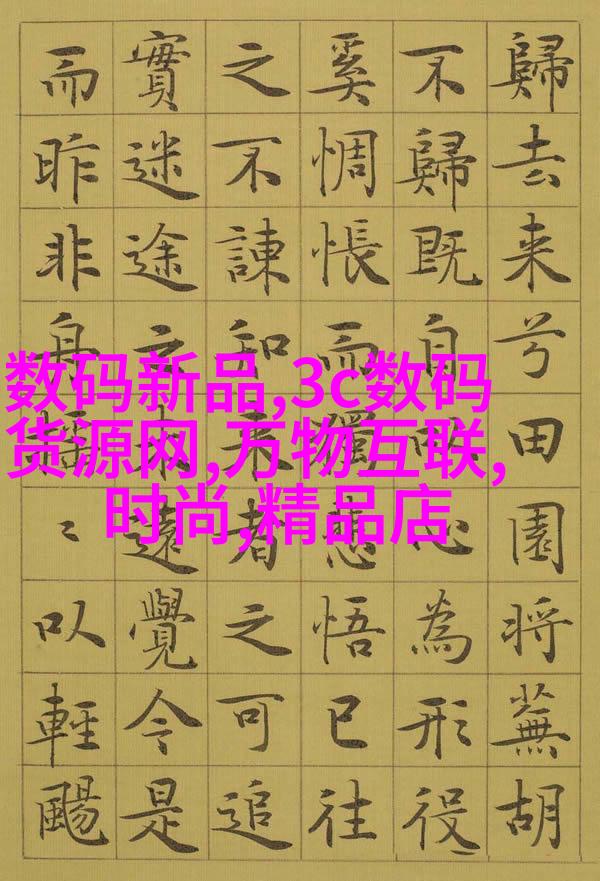 歸去来兮田園将蕪胡
不歸既自心為形役
奚惆悵而獨悲悟已往
之不諫知来者之可追
實迷途未遠覺今是
而昨非舟摇〻以輕颺
数码新品,3c数码
货源网,万物互联,
时尚,精品店